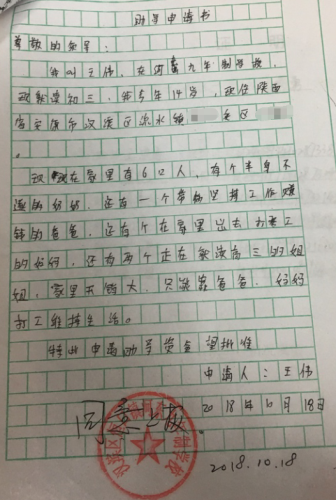 助学申请书
尊敬的领导:
我叫王伟,在 九年制学校,
现就读初三,我今年14岁,现住陕西
省安康市汉滨区流水镇 安区
。
我现在家里有6口人,有个半身不
遂的奶奶,还有一个带病坚持工作赚
钱的爸爸,还有个在家里出去打零工
的妈妈,还有两个正在就读高三的姐
姐,家里开销大,只能靠爸爸、妈妈
打工维持生活。
特此申请助学资金望批准
申请人:王伟
2018年10月18日
同意上报
2018.10.18